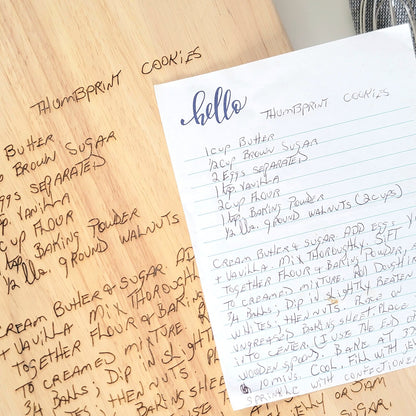 THUMBPRINT COOKIES
BUTTER
BROWN SUGAR
EGGS SEPARATED
VANILLA
CUP FLOUR
BAKING POWDER
GROUND WALNUTS
CREAM BUTTER & SUGAR AD
+ VANILLA MIX THOROUGHLY
TOGETHER FLOUR & BAKING
TO CREAMED MIXTURE. R
3/4 BALLS; DIP IN SLIGHTLY
WHITES; THEN NUTS. PLA
UNGREASED BAKING SHEET
hello
THUMBPRINT COOKIES
1 CUP BUTTER
1/2 CUP BROWN SUGAR
2 EGGS SEPARATED
1 tsp VANILLA
2 CUP FLOUR
1 tsp BAKING POWDER
1/2 lb. GROUND WALNUTS (2 CUPS)
CREAM BUTTER & SUGAR ADD EGG Y
+ VANILLA. MIX THOROUGHLY. SIFT
TOGETHER FLOUR & BAKING POWDER,
TO CREAMED MIXTURE. ROLL DOUGH IN
3/4 BALLS; DIP IN SLIGHTLY BEATEN
WHITES; THEN NUTS. PLACE ON
UNGREASED BAKING SHEET. PLACE
INTO CENTER. (I USE THE END OF
WOODEN SPOON). BAKE AT
10 MINS. COOL. FILL WITH JE
SPRINKLE WITH CONFECTIONE
OR JAM
SUGAR.